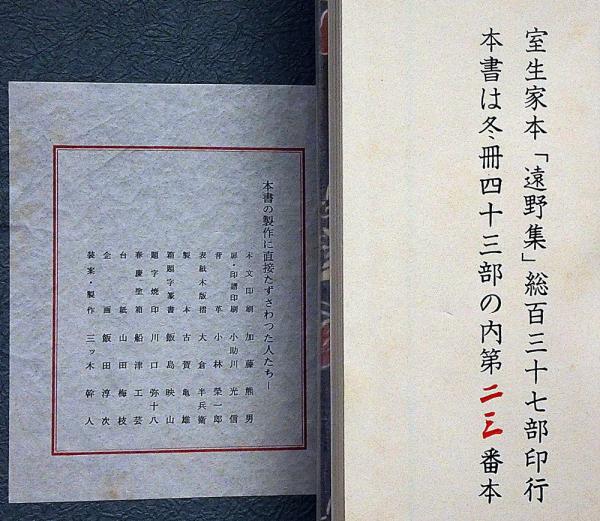 室生家本「遠野集」総百三十七部印行
本書は冬冊四十三部の内第二三番本
本書の製作に直接たずさわつた人たち―
本文印刷 加藤熊男
扉・印譜印刷 小助川光信
背革 小林榮一郎
表紙木版摺 大倉半兵衛
製本 古賀亀雄
箱題字篆書 飯島映山
題字焼印 川口弥十八
春慶塗箱 船津工芸
台紙 山田梅枝
企画 飯田淳次
装案・製作 三ッ木幹人